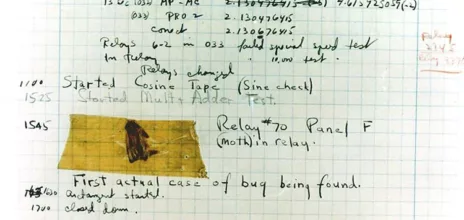 (033) PRO 2 2.130476415
conct. 2.130676415
Relays 6-2 in 033 failed special speed test
in Relay 10,000 test.
Relays changed
1100 Started Cosine Tape (Sine check)
1525 Started Mult+Adder Test.
1545 Relay #70 Panel F
(moth) in relay.
First actual case of bug being found.
1630 antangent started.
1700 closed down.